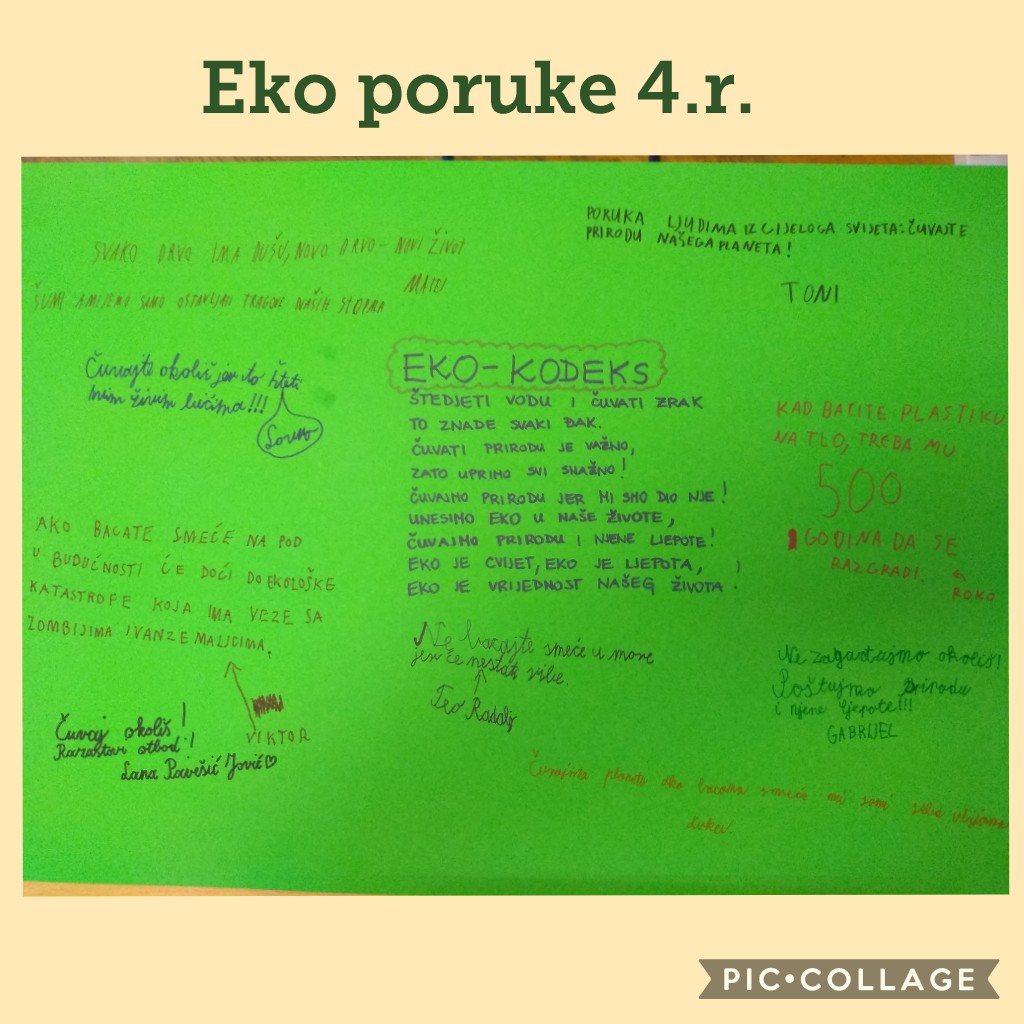 Eko poruke 4.r.
SVAKO DRVO IMA DUŠU, NOVO DRVO - NOVI ŽIVOT
MATEJ
ŠUMI SMIJEMO SAMO OSTAVLJATI TRAGOVE NAŠIH STOPALA
PORUKA LJUDIMA IZ CIJELOGA SVIJETA: ČUVAJTE
PRIRODU NAŠEGA PLANETA!
TONI
Čuvajte okoliš jer to šteti
živim bićima!!!
EKO-KODEKS
ŠTEDJETI VODU I ČUVATI ZRAK
TO ZNADE SVAKI ĐAK.
ČUVATI PRIRODU JE VAŽNO,
ZATO UPRIMO SVI SNAŽNO!
ČUVAJMO PRIRODU JER MI SMO DIO NJE!
UNESIMO EKO U NAŠE ŽIVOTE,
ČUVAJMO PRIRODU I NJENE LJEPOTE!
EKO JE CVIJET, EKO JE LJEPOTA,
EKO JE VRIJEDNOST NAŠEG ŽIVOTA.
KAD BACITE PLASTIKU
NA TLO, TREBA MU
500
GODINA DA SE
RAZGRADI.
ROKO
AKO BACATE SMEĆE NA POD
U BUDUĆNOSTI ĆE DOĆI DO EKOLOŠKE
KATASTROFE KOJA IMA VEZE SA
ZOMBIJIMA I VANZEMALJCIMA.
VIKTOR
Ne bacajte smeće u more
jer će nestati ribe.
Teo
Ne zagađujmo okoliš!
Poštujmo prirodu
i njene ljepote!!!
GABRIJEL
Čuvaj okoliš!
Razvrstavi otpad!
Lana Pavešić Jović♡
Čuvajmo planetu ako bacamo smeće mi sami sebe ubijamo
Luka.
PIC•COLLAGE